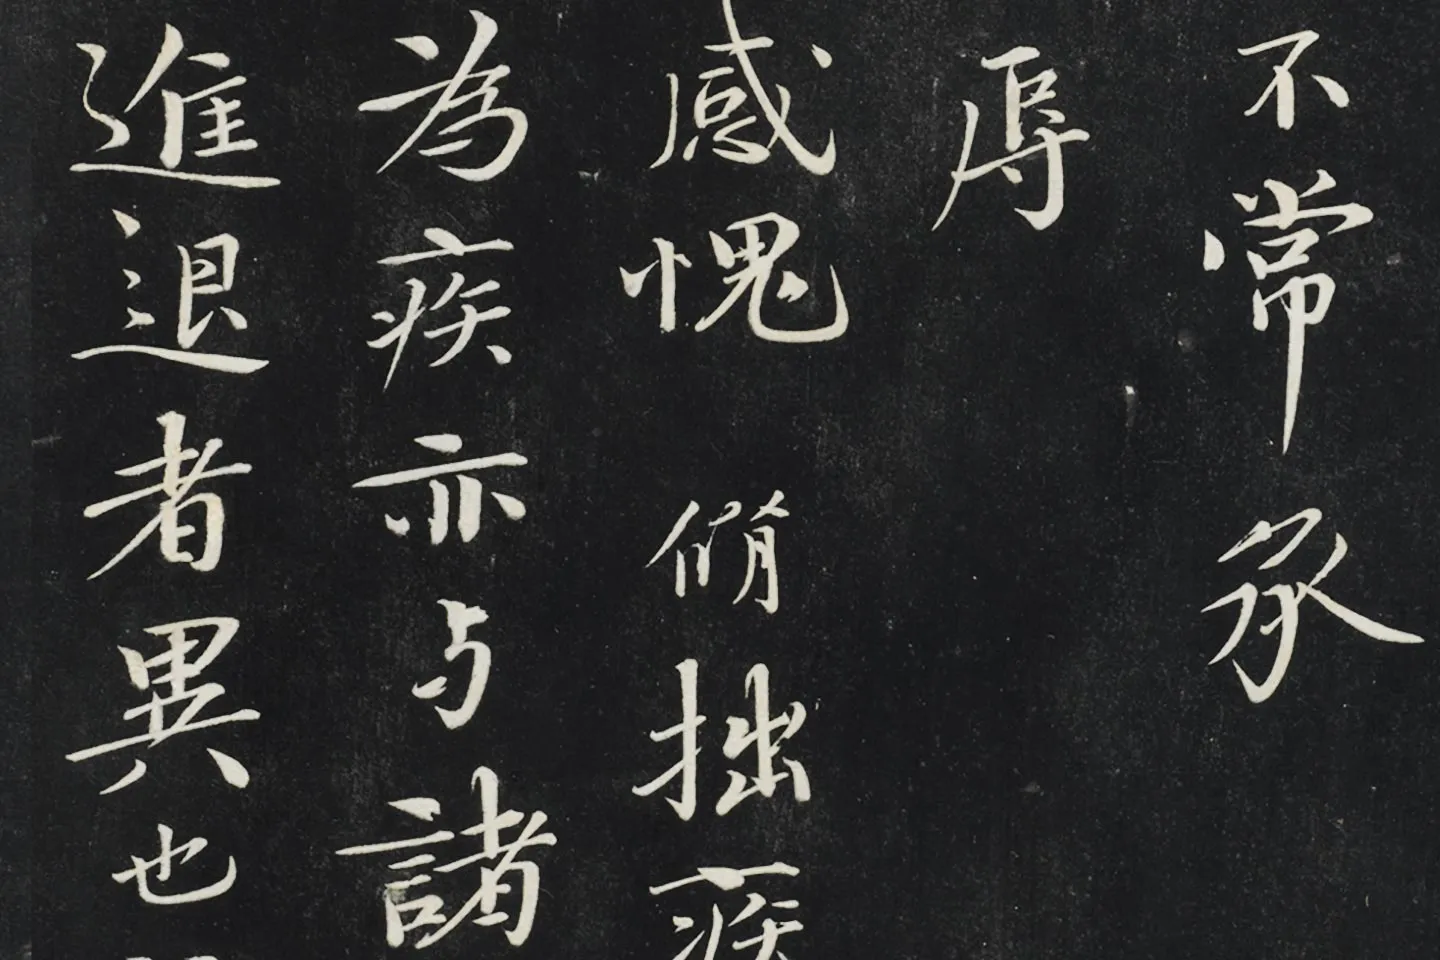 不常承
厚
感愧 脩拙疾
為疾亦与諸
進退者異也